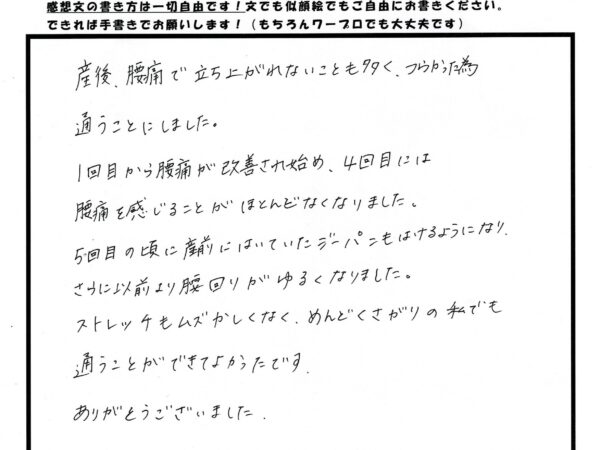 感想文の書き方は一切自由です！文でも似顔絵でもご自由にお書きください。
できれば手書きでお願いします！（もちろんワープロでも大丈夫です）
産後、腰痛で立ち上がれないことも多く、つらかった為
通うことにしました。
1回目から腰痛が改善され始め、4回目には
腰痛を感じることがほとんどなくなりました。
5回目の頃に産前にはいていたジーパンもはけるようになり、
さらに以前より腰回りがゆるくなりました。
ストレッチもムズかしくなく、めんどくさがりの私でも
通うことができてよかったです。
ありがとうございました。